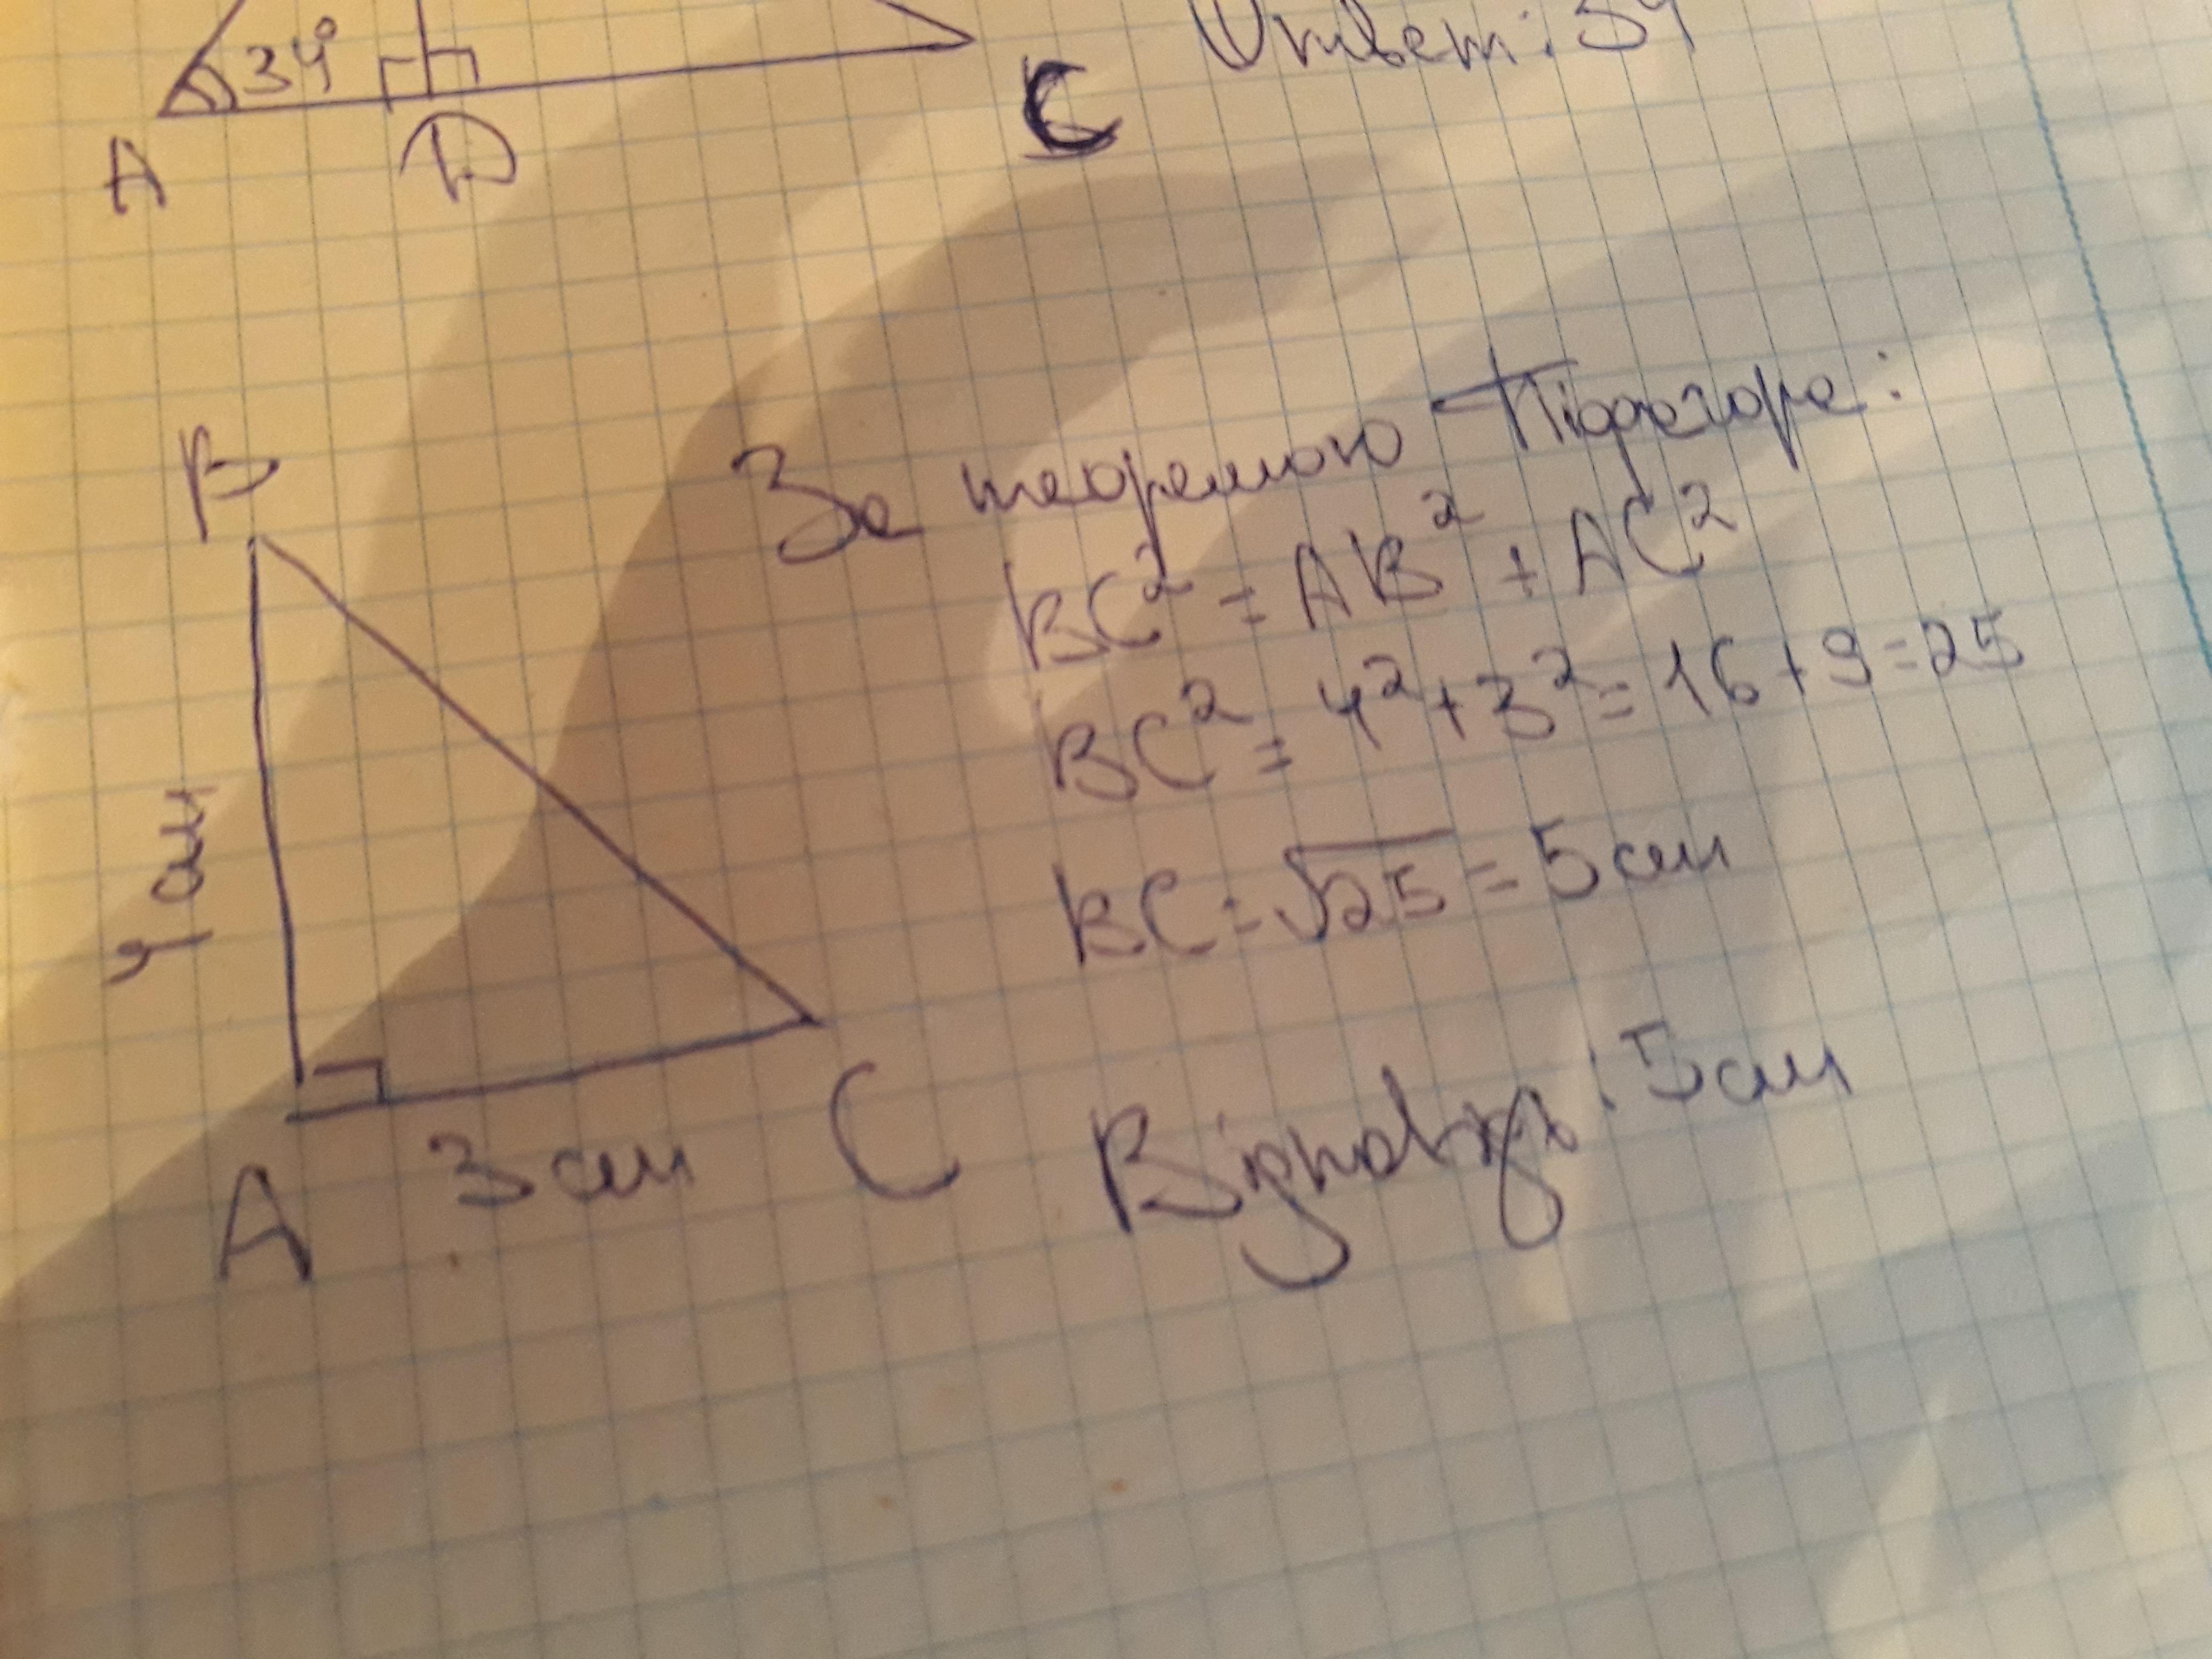 34°
A
D
C
Ответ: 34
B
4 см
A
3 см
C
За теоремою Піфагора:
BC² = AB² + AC²
BC² = 4² + 3² = 16 + 9 = 25
BC = √25 = 5 см
Відповідь: 5 см